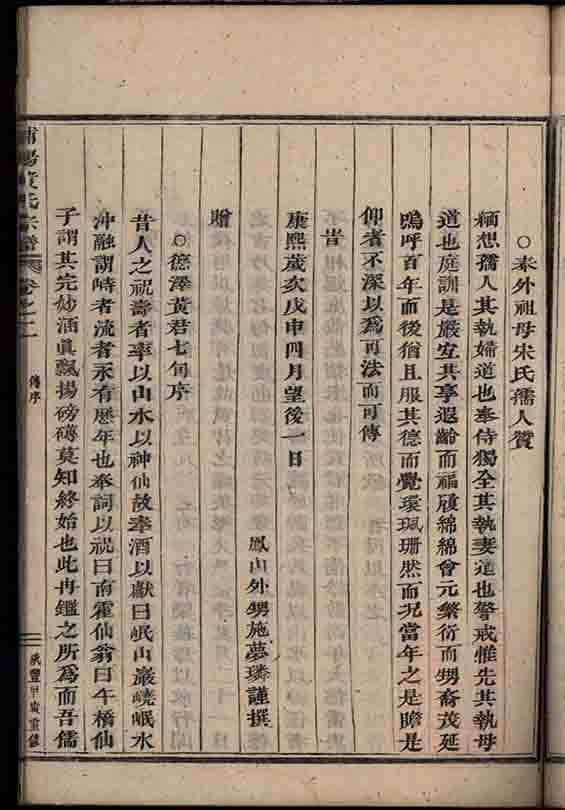 ○奉外祖母宋氏孺人贊
緬想孺人其執婦道也奉侍獨全其執妻道也警戒惟先其執母
道也庭訓是嚴宜其享遐齡而福履綿綿會元繁衍而甥裔茂延
嗚呼百年而後猶且服其德而覺環珮珊然而況當年之是瞻是
仰者不深以為可法而可傳
旹
康熙歲次戊申四月望後一日
鳳山外甥施夢璘謹撰
贈
○德澤黃君七旬序
昔人之祝壽者率以山水以神仙故奉酒以獻曰岷山巖嶢岷水
沖融謂峙者流者永有歷年也奉詞以祝曰南霍仙翁曰午橋仙
子謂其完妙涵眞飄揚磅礴莫知終始也此冉鑑之所為而吾儒
黃氏宗譜
卷之二
傳序
咸豐甲寅重修